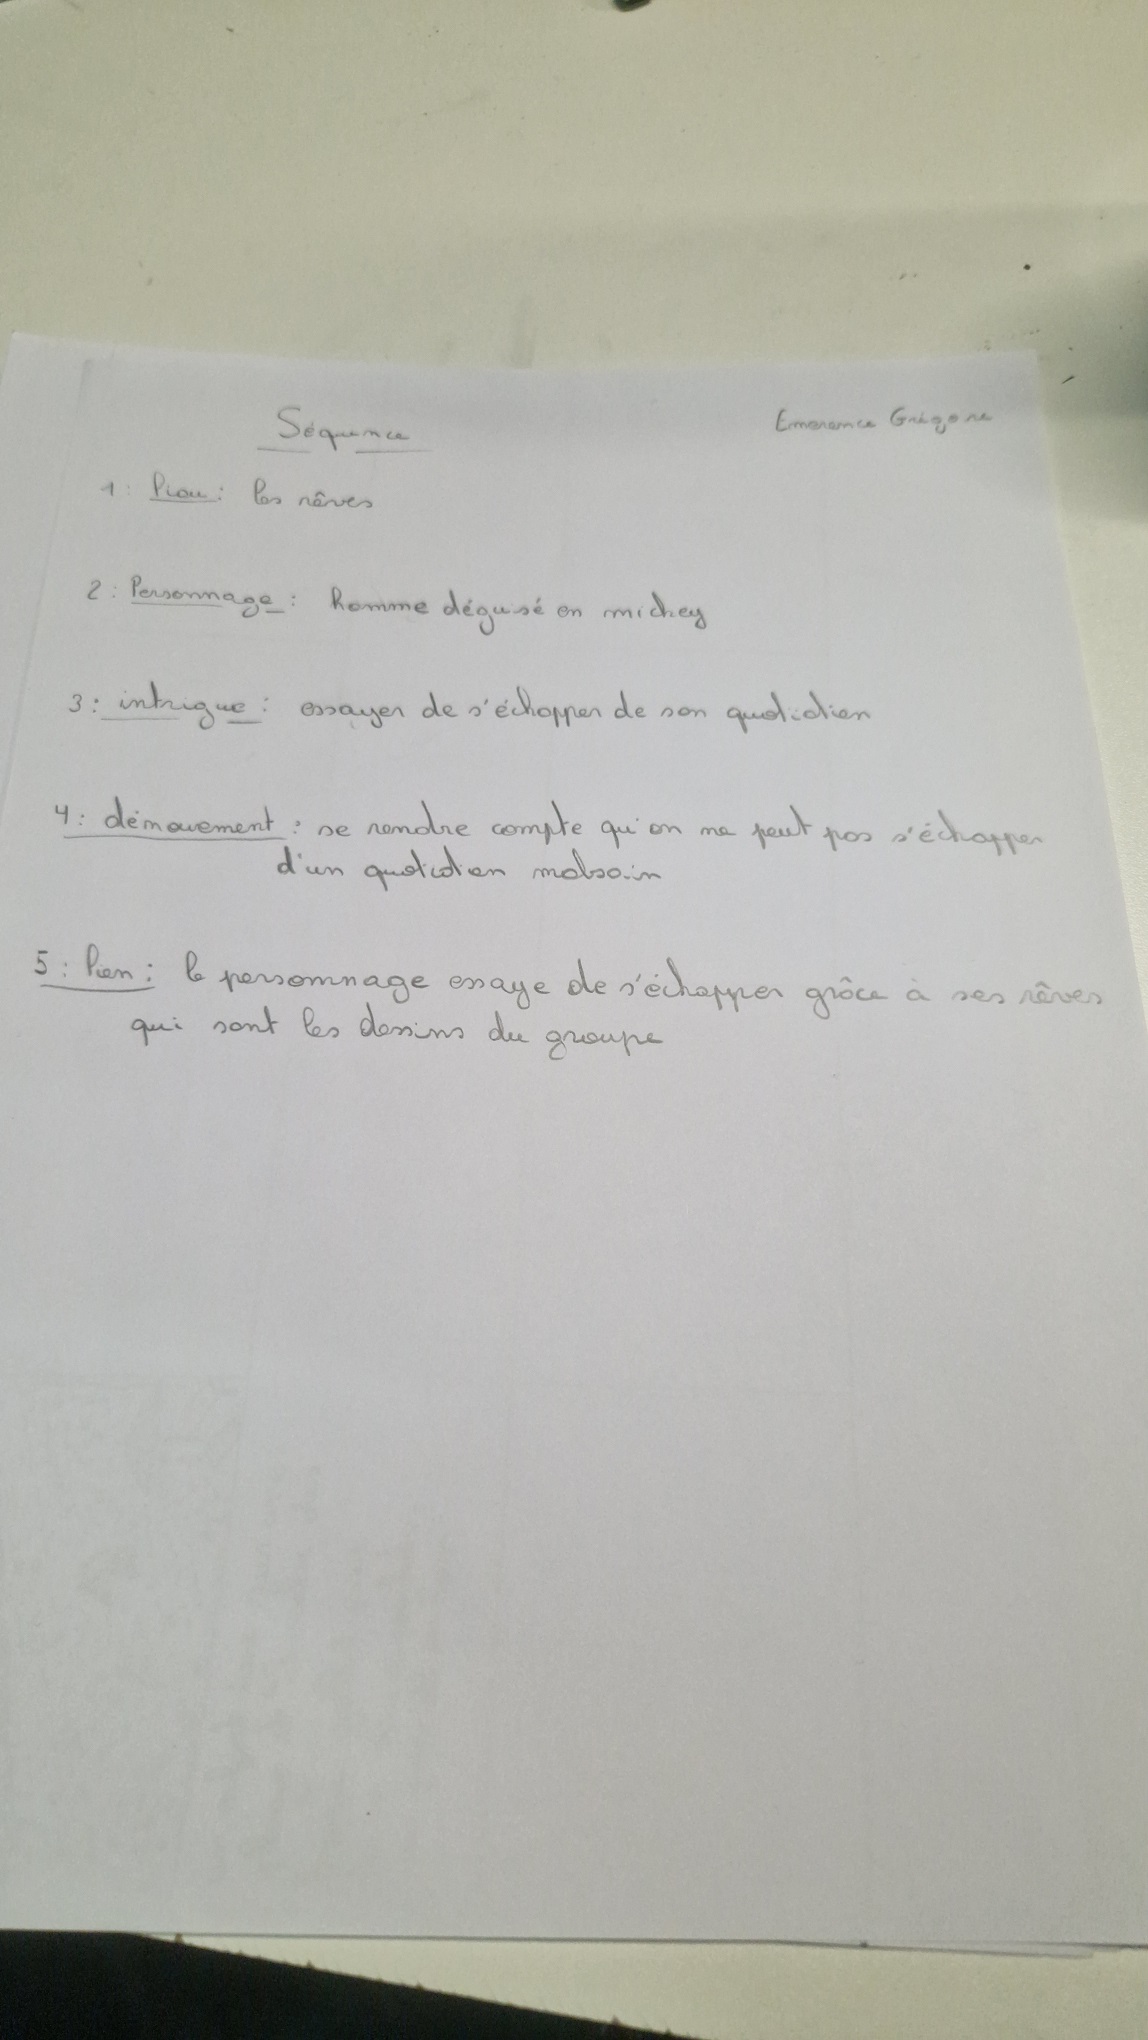 Séquence
Emerence Grégoire
1: Lieu: les rêves
2: Personnage: homme dégusé en mickey
3: intrigue: essayer de s'échapper de son quotidien
4: dénouement: se rendre compte qu'on ne peut pas s'échapper
d'un quotidien malsain
5: Lien: le personnage essaye de s'échapper grâce à ses rêves
qui sont les dessins du groupe